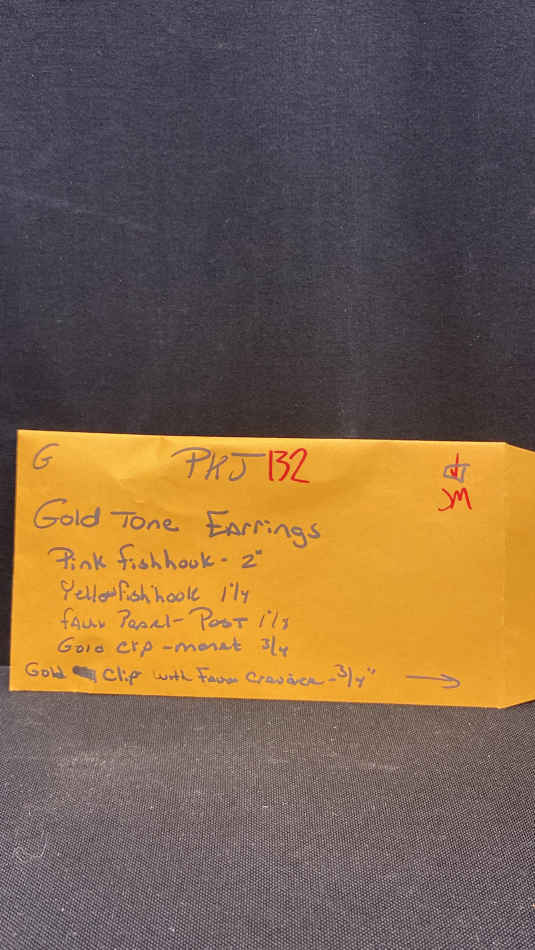 G PKJ 132
JM
Gold Tone Earrings
Pink fishhook - 2"
Yellow fishhook 1 1/4
faux Pearl - Post 1 1/3
Gold clip - monet 3/4
Gold Clip with Faux - 3/4" →